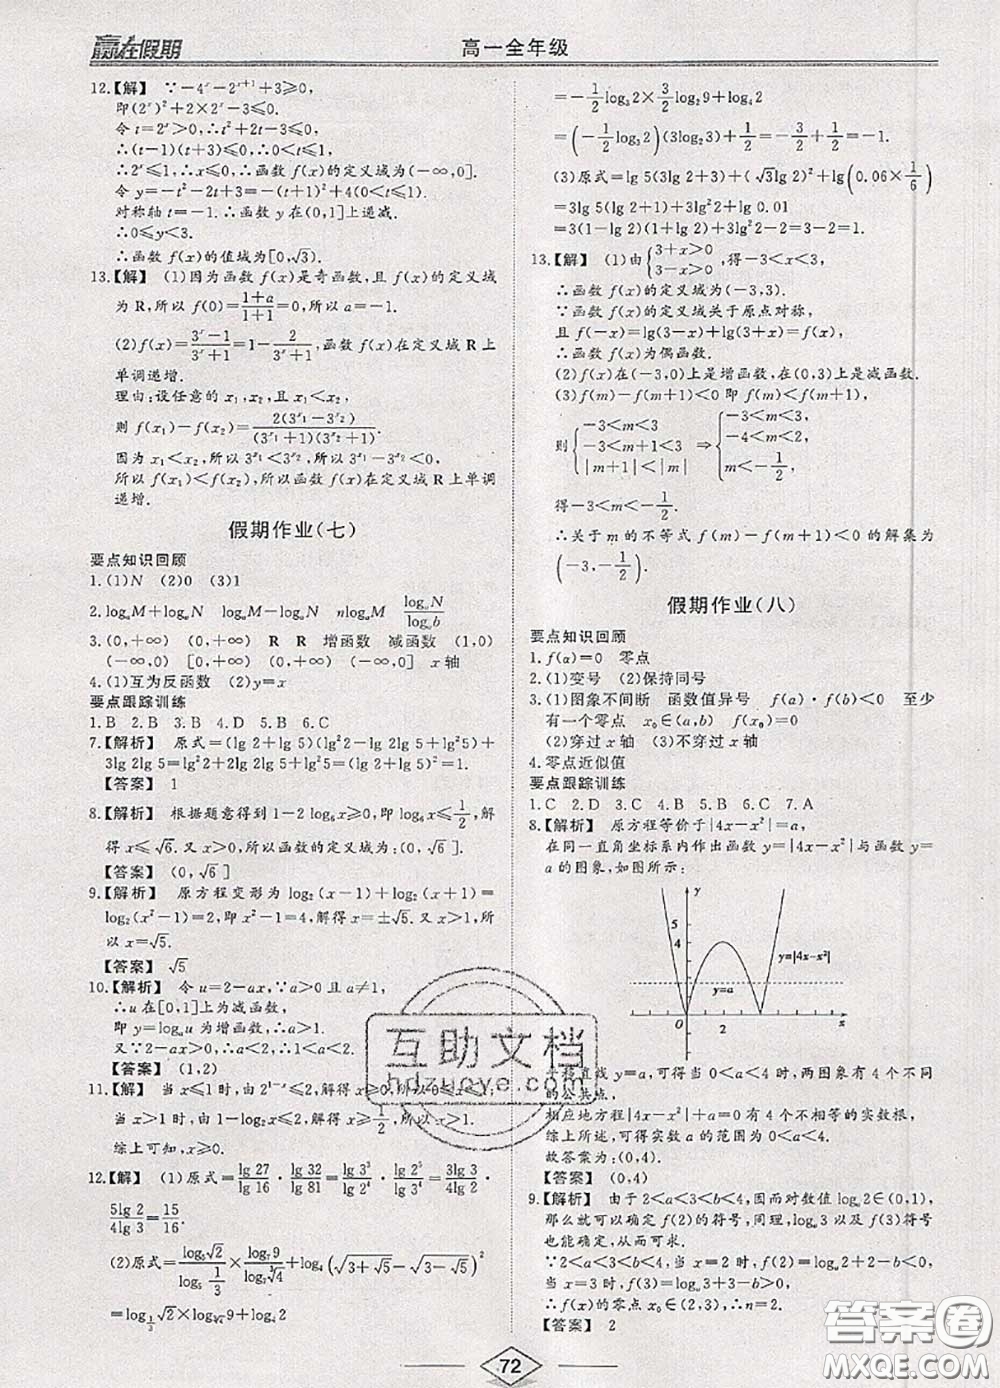 赢在假期
高一全年级
12.【解】 ∵-4ˣ-2ˣ⁺¹+3≥0,
即(2ˣ)²+2×2ˣ-3≤0.
令 t=2ˣ>0,∴t²+2t-3≤0,
∴(t-1)(t+3)≤0,∴0<t≤1.
∴2ˣ≤1,∴x≤0.∴函数 f(x)的定义域为(-∞,0].
令 y=-t²-2t+3=-(t+1)²+4(0<t≤1).
对称轴 t=-1.∴函数 y 在(0,1]上递减.
∴0≤y<3.
∴函数 f(x)的值域为[0,√3).
13.【解】 (1)因为函数 f(x)是奇函数,且 f(x)的定义域
为 R,所以 f(0)=(1+a)/(1+1)=0,所以 a=-1.
(2)f(x)=(3ˣ-1)/(3ˣ+1)=1-2/(3ˣ+1),函数 f(x)在定义域 R 上
单调递增.
理由:设任意的 x₁,x₂,且 x₁<x₂,
则 f(x₁)-f(x₂)=2(3^x₁-3^x₂)/((3^x₁+1)(3^x₂+1)).
因为 x₁<x₂,所以 3^x₁<3^x₂,所以 3^x₁-3^x₂<0,
所以 f(x₁)<f(x₂),所以函数 f(x)在定义域 R 上单调
递增.
假期作业(七)
要点知识回顾
1.(1)N (2)0 (3)1
2.logₐM+logₐN logₐM-logₐN nlogₐM logₐN/logₐb
3.(0,+∞) (0,+∞) R R 增函数 减函数 (1,0)
(-∞,0) [0,+∞) (0,+∞) (-∞,0] x 轴
4.(1)互为反函数 (2)y=x
要点跟踪训练
1.B 2.B 3.B 4.D 5.B 6.C
7.【解析】 原式=(lg 2+lg 5)(lg²2-lg 2lg 5+lg²5)+
3lg 2lg 5=lg²2+2lg 2lg 5+lg²5=(lg 2+lg 5)²=1.
【答案】 1
8.【解析】 根据题意得到 1-2 log₆x≥0,即 log₆x≤1/2,解
得 x≤√6.又 x>0,所以函数的定义域为:(0,√6].
【答案】 (0,√6]
9.【解析】 原方程变形为 log₂(x-1)+log₂(x+1)=
log₂(x²-1)=2,即 x²-1=4,解得 x=±√5.又 x>1,所
以 x=√5.
【答案】 √5
10.【解析】 令 u=2-ax,∵a>0 且 a≠1,
∴u 在[0,1]上为减函数,
即 y=logₐu 为增函数,∴a>1.
又∵2-ax>0,∴2-a>0,∴a<2,∴1<a<2.
【答案】 (1,2)
11.【解】 当 x≤1 时,由 2¹⁻ˣ≤2,解得 x≥0,所以 0≤x≤1.
当 x>1 时,由 1-log₂x≤2,解得 x≥1/2,所以 x>1.
综上可知,x≥0.
12.【解】 (1)原式=lg 27/lg 16·lg 32/lg 81=lg 3³/lg 2⁴·lg 2⁵/lg 3⁴=3lg 3/4lg 2·
5lg 2/4lg 3=15/16.
(2)原式=log₅√2/log₅(1/3)×log₇9/log₇∛4+log₄(√(3+√5)-√(3-√5))²
=log_{1/3}√2×log_{∛4}9+log₄2
=-1/2log₃2×3/2log₂9+log₄2
=(-1/2log₃2)(3log₂3)+1/2=-3/2+1/2=-1.
(3)原式=lg 5(3lg 2+3)+(√3lg 2)²+lg(0.06×1/6)
=3lg 5(lg 2+1)+3lg²2+lg 0.01
=3(1-lg 2)(1+lg 2)+3lg²2-2=3-2=1.
13.【解】 (1)由{3+x>0,3-x>0,得-3<x<3,
∴函数 f(x)的定义域为(-3,3).
∵函数 f(x)的定义域关于原点对称,
且 f(-x)=lg(3-x)+lg(3+x)=f(x),
∴函数 f(x)为偶函数.
(2)f(x)在(-3,0)上是增函数,在(0,3)上是减函数.
(3)f(m)-f(m+1)<0 即 f(m)<f(m+1),
则{-3<m<3 -3<m+1<3 |m+1|<|m| ⇒{-3<m<3, -4<m<2, m<-1/2.
得-3<m<-1/2.
∴关于 m 的不等式 f(m)-f(m+1)<0 的解集为
(-3,-1/2).
假期作业(八)
要点知识回顾
1.f(α)=0 零点
2.(1)变号 (2)保持同号
3.(1)图象不间断 函数值异号 f(a)·f(b)<0 至少
有一个零点 x₀∈(a,b) f(x₀)=0
(2)穿过 x 轴 (3)不穿过 x 轴
4.零点近似值
要点跟踪训练
1.C 2.D 3.C 4.B 5.C 6.C 7.A
8.【解析】 原方程等价于|4x-x²|=a,
在同一直角坐标系内作出函数 y=|4x-x²|与函数 y
=a 的图象,如图所示:
y
5
4
y=|4x-x²|
y=a
O 2 x
平移直线 y=a,可得当 0<a<4 时,两图象有 4 个不同
的公共点,
相应地方程|4x-x²|+a=0 有 4 个不相等的实数根,
综上所述,可得实数 a 的范围为 0<a<4.
故答案为:(0,4).
【答案】 (0,4)
9.【解析】 由于 2<a<3<b<4,因而对数值 logₐ2∈(0,1),
那么就可以确定 f(2)的符号,同理,logₐ3 以及 f(3)的符号
也能确定,从而可求.
∵2<a<3<b<4,当 x=2 时,f(2)=logₐ2+2-b<0,
当 x=3 时,f(3)=logₐ3+3-b>0,
∴f(x)的零点 x₀∈(2,3),∴n=2.
【答案】 2
互助文档
hdzuoye.com
答案圈
MXQE.COM
72